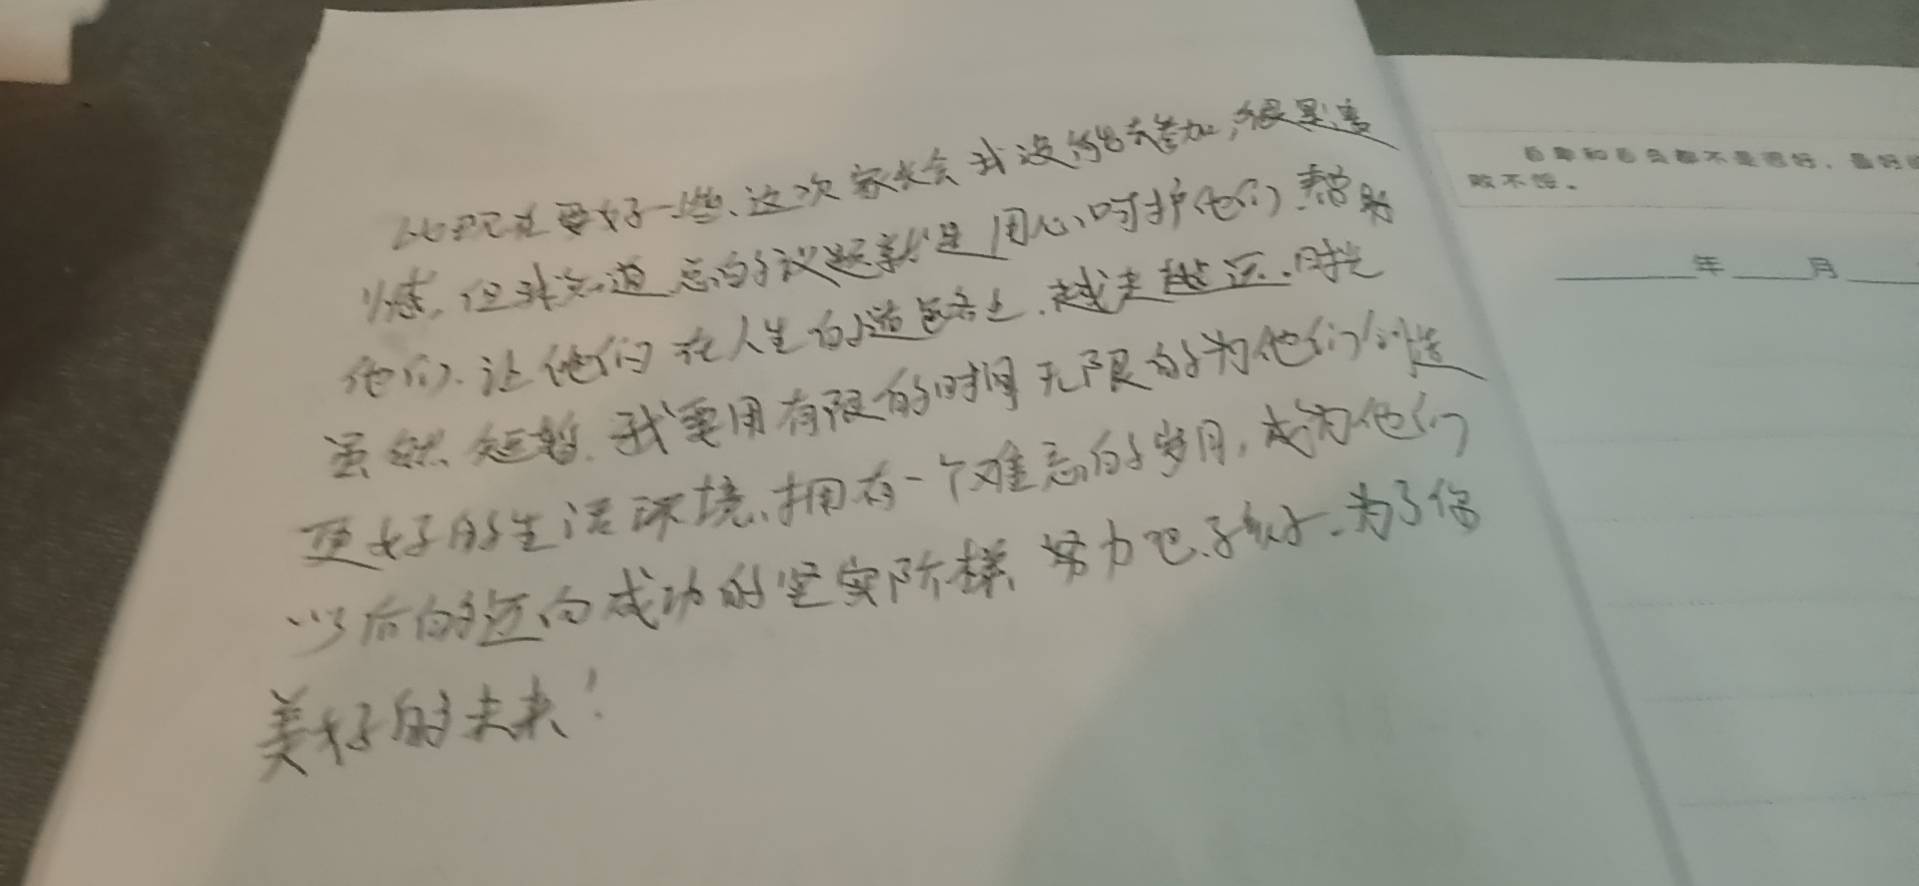 比现在要好一些、这次家长会我没能去参加,很是遗
憾,但我知道总的议题就是用心呵护他们.帮助
他们.让他们在人生的道路上.越走越远.时光
虽然短暂.我要用有限的时间无限的为他们创造
更好的生活环境、拥有一个难忘的岁月,成为他们
以后的迈向成功的坚实阶梯、努力吧.孩子.为了你
美好的未来!
败不馁。
年 月